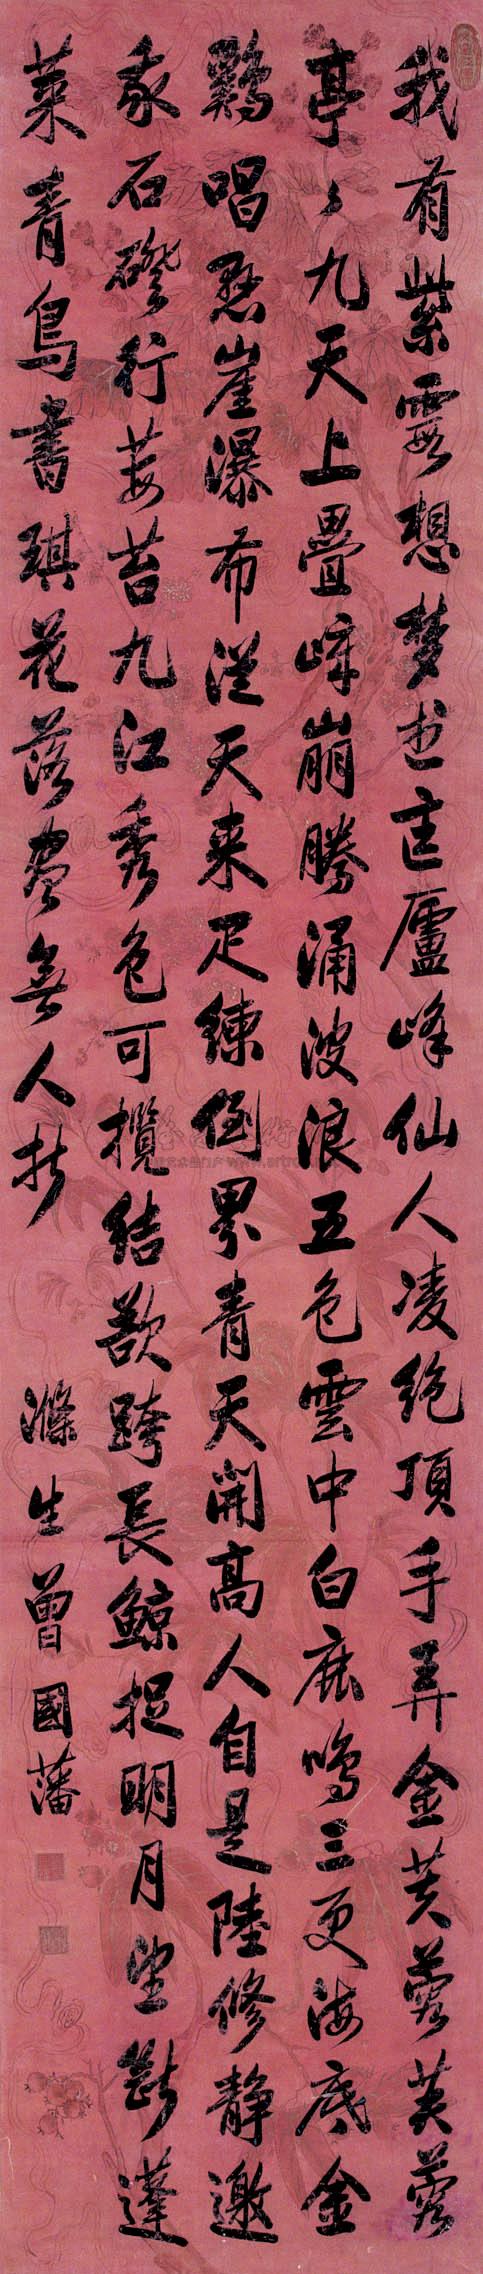 我有紫霞想夢出匡廬峰仙人凌絕頂手弄金芙蓉芙蓉
亭々九天上疊嶂崩騰涌波浪五色雲中白鹿鳴三更海底金
鷄唱懸崖瀑布從天來疋練倒界青天開高人自是陸修靜邀
我石磴行莓苔九江秀色可攬結欲跨長鯨捉明月望斷蓬
萊青鳥書琪花落盡無人折
滌生曾國藩